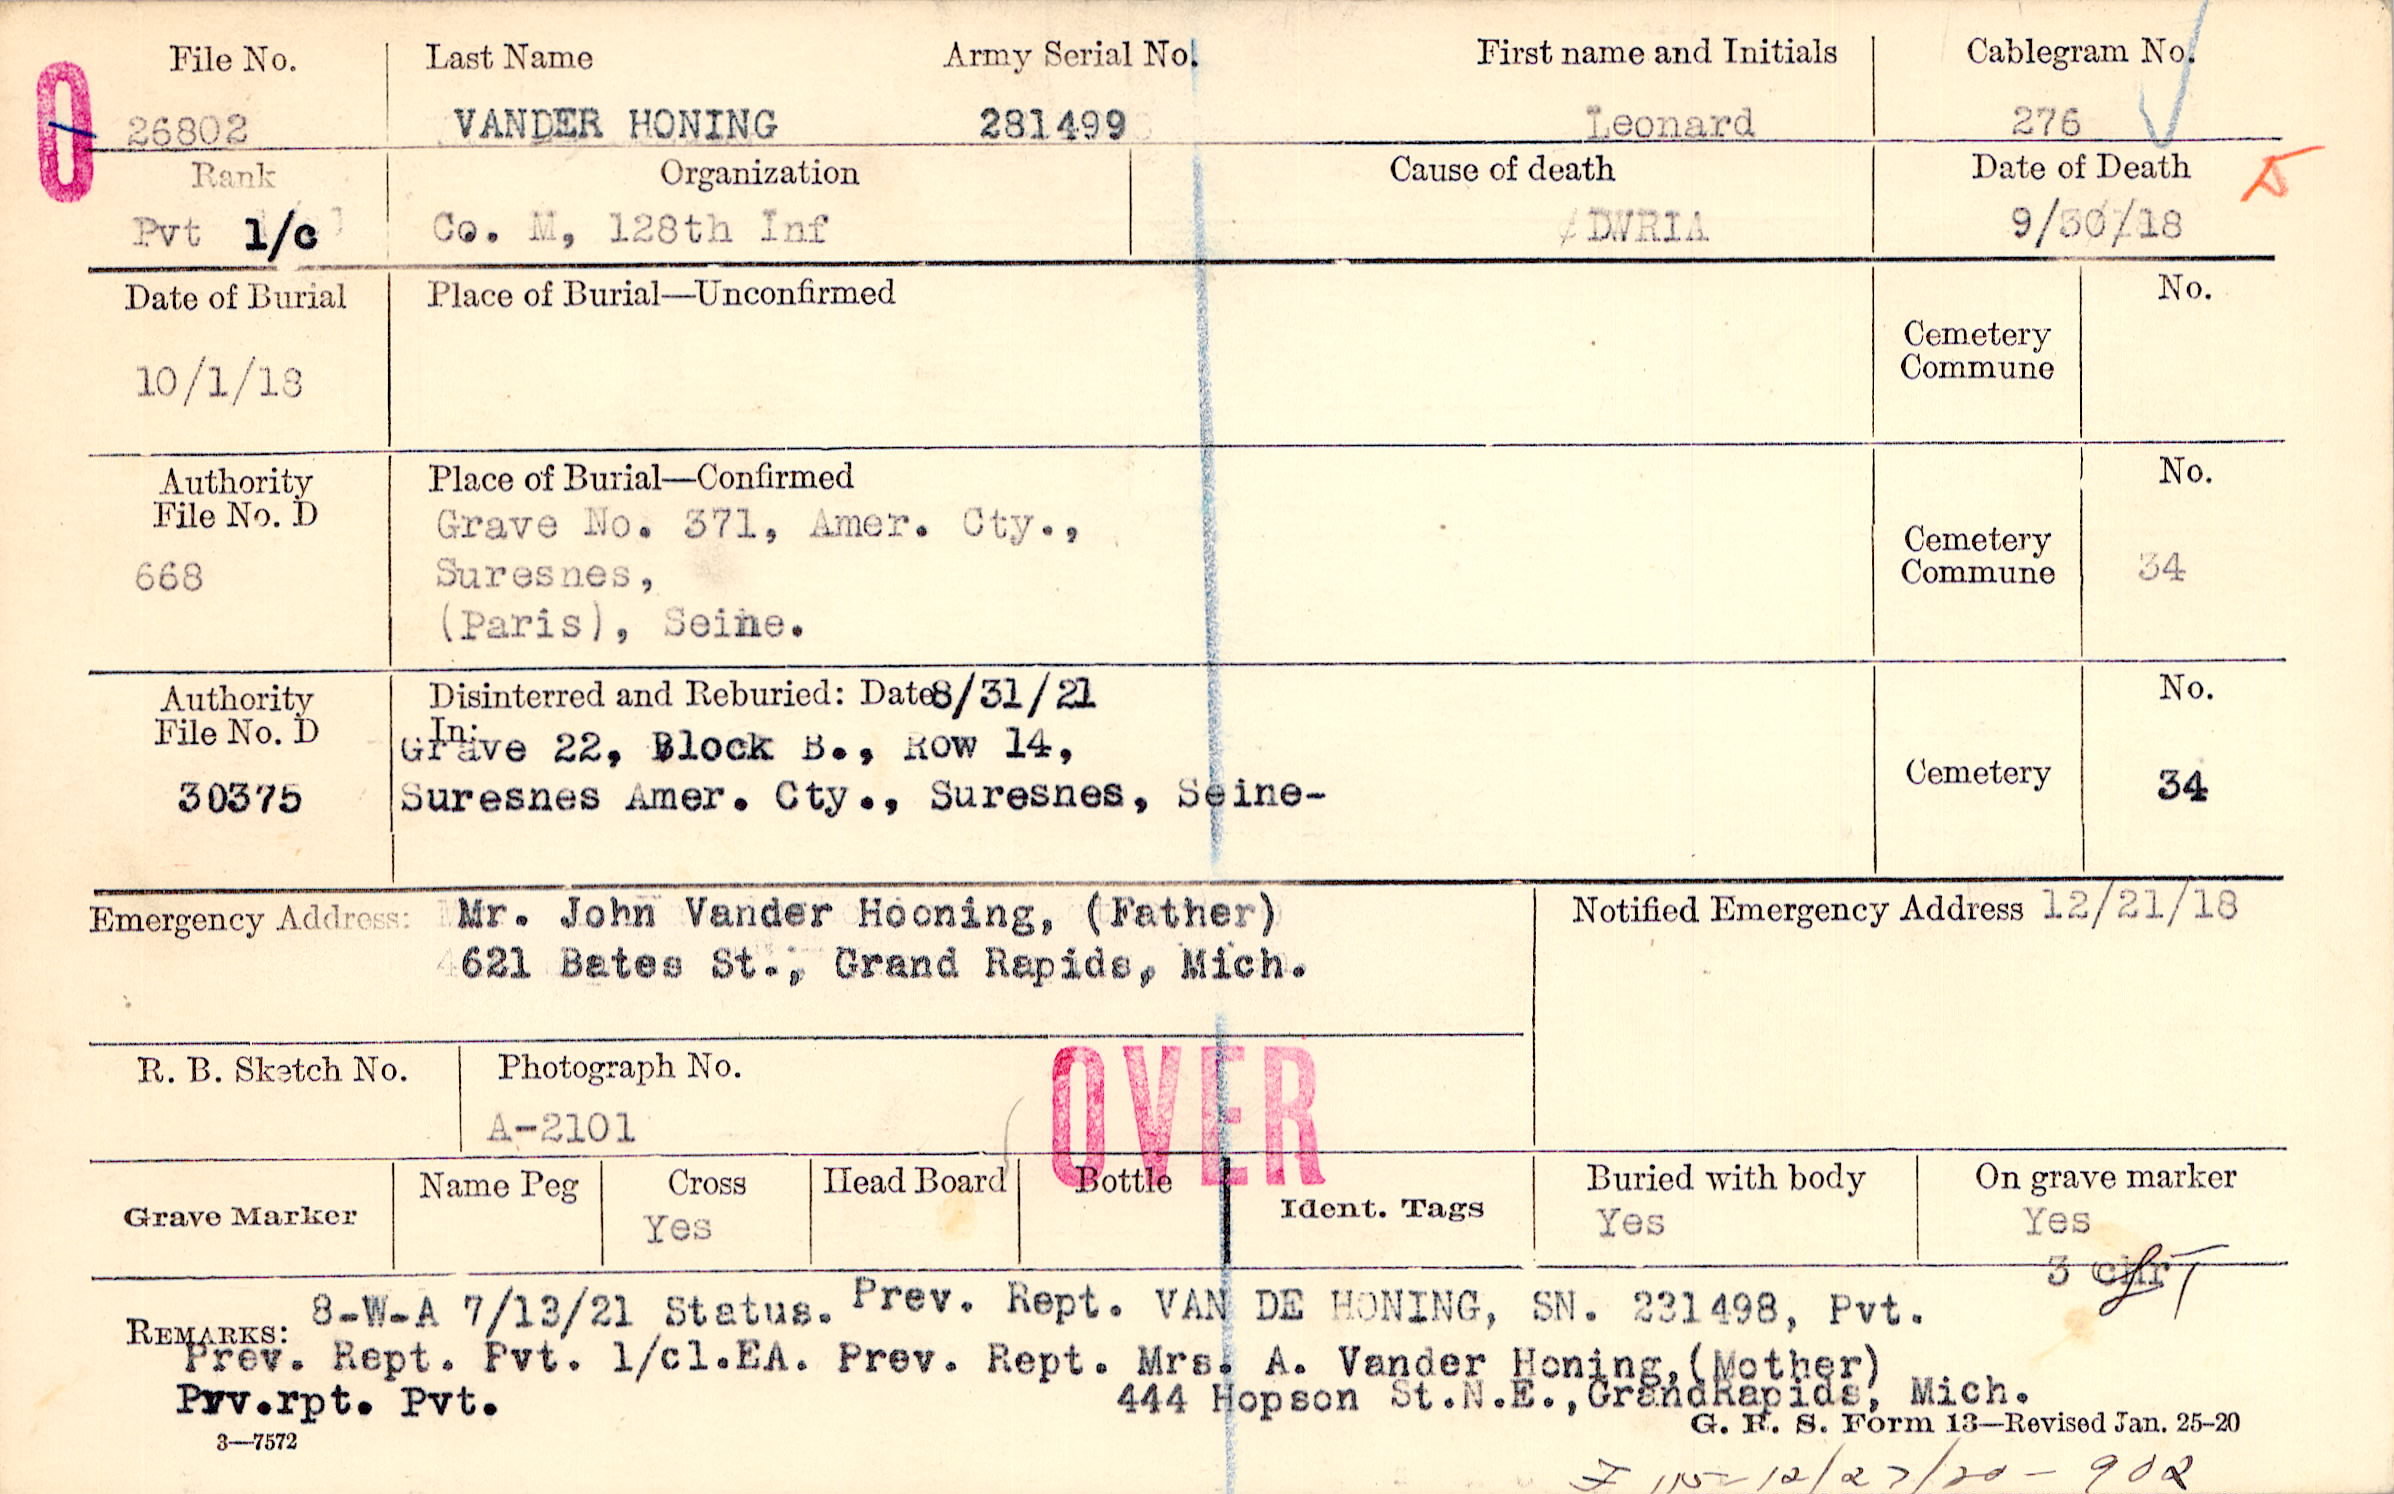 File No. Last Name Army Serial No. First name and Initials Cablegram No.
26802 VANDER HONING 281499 Leonard 276
Rank Organization Cause of death Date of Death
Pvt 1/c Co. M, 128th Inf DWRIA 9/30/18
Date of Burial Place of Burial—Unconfirmed No.
Cemetery
Commune
10/1/18
Authority Place of Burial—Confirmed No.
File No. D Grave No. 371, Amer. Cty.,
Cemetery
668 Suresnes, Commune 34
(Paris), Seine.
Authority Disinterred and Reburied: Date 8/31/21 No.
File No. D In:
Grave 22, Block B., Row 14,
Cemetery
30375 Suresnes Amer. Cty., Suresnes, Seine- 34
Emergency Address: Mr. John Vander Hooning, (Father) Notified Emergency Address 12/21/18
621 Bates St., Grand Rapids, Mich.
R. B. Sketch No. Photograph No.
OVER
A-2101
Grave Marker Name Peg Cross Head Board Bottle Ident. Tags Buried with body On grave marker
Yes Yes Yes
3 chr
REMARKS: 8-W-A 7/13/21 Status. Prev. Rept. VAN DE HONING, SN. 231498, Pvt.
Prev. Rept. Pvt. 1/cl.EA. Prev. Rept. Mrs. A. Vander Honing,(Mother)
Prv.rpt. Pvt. 444 Hopson St.N.E.,GrandRapids, Mich.
3—7572 G. R. S. Form 13—Revised Jan. 25-20